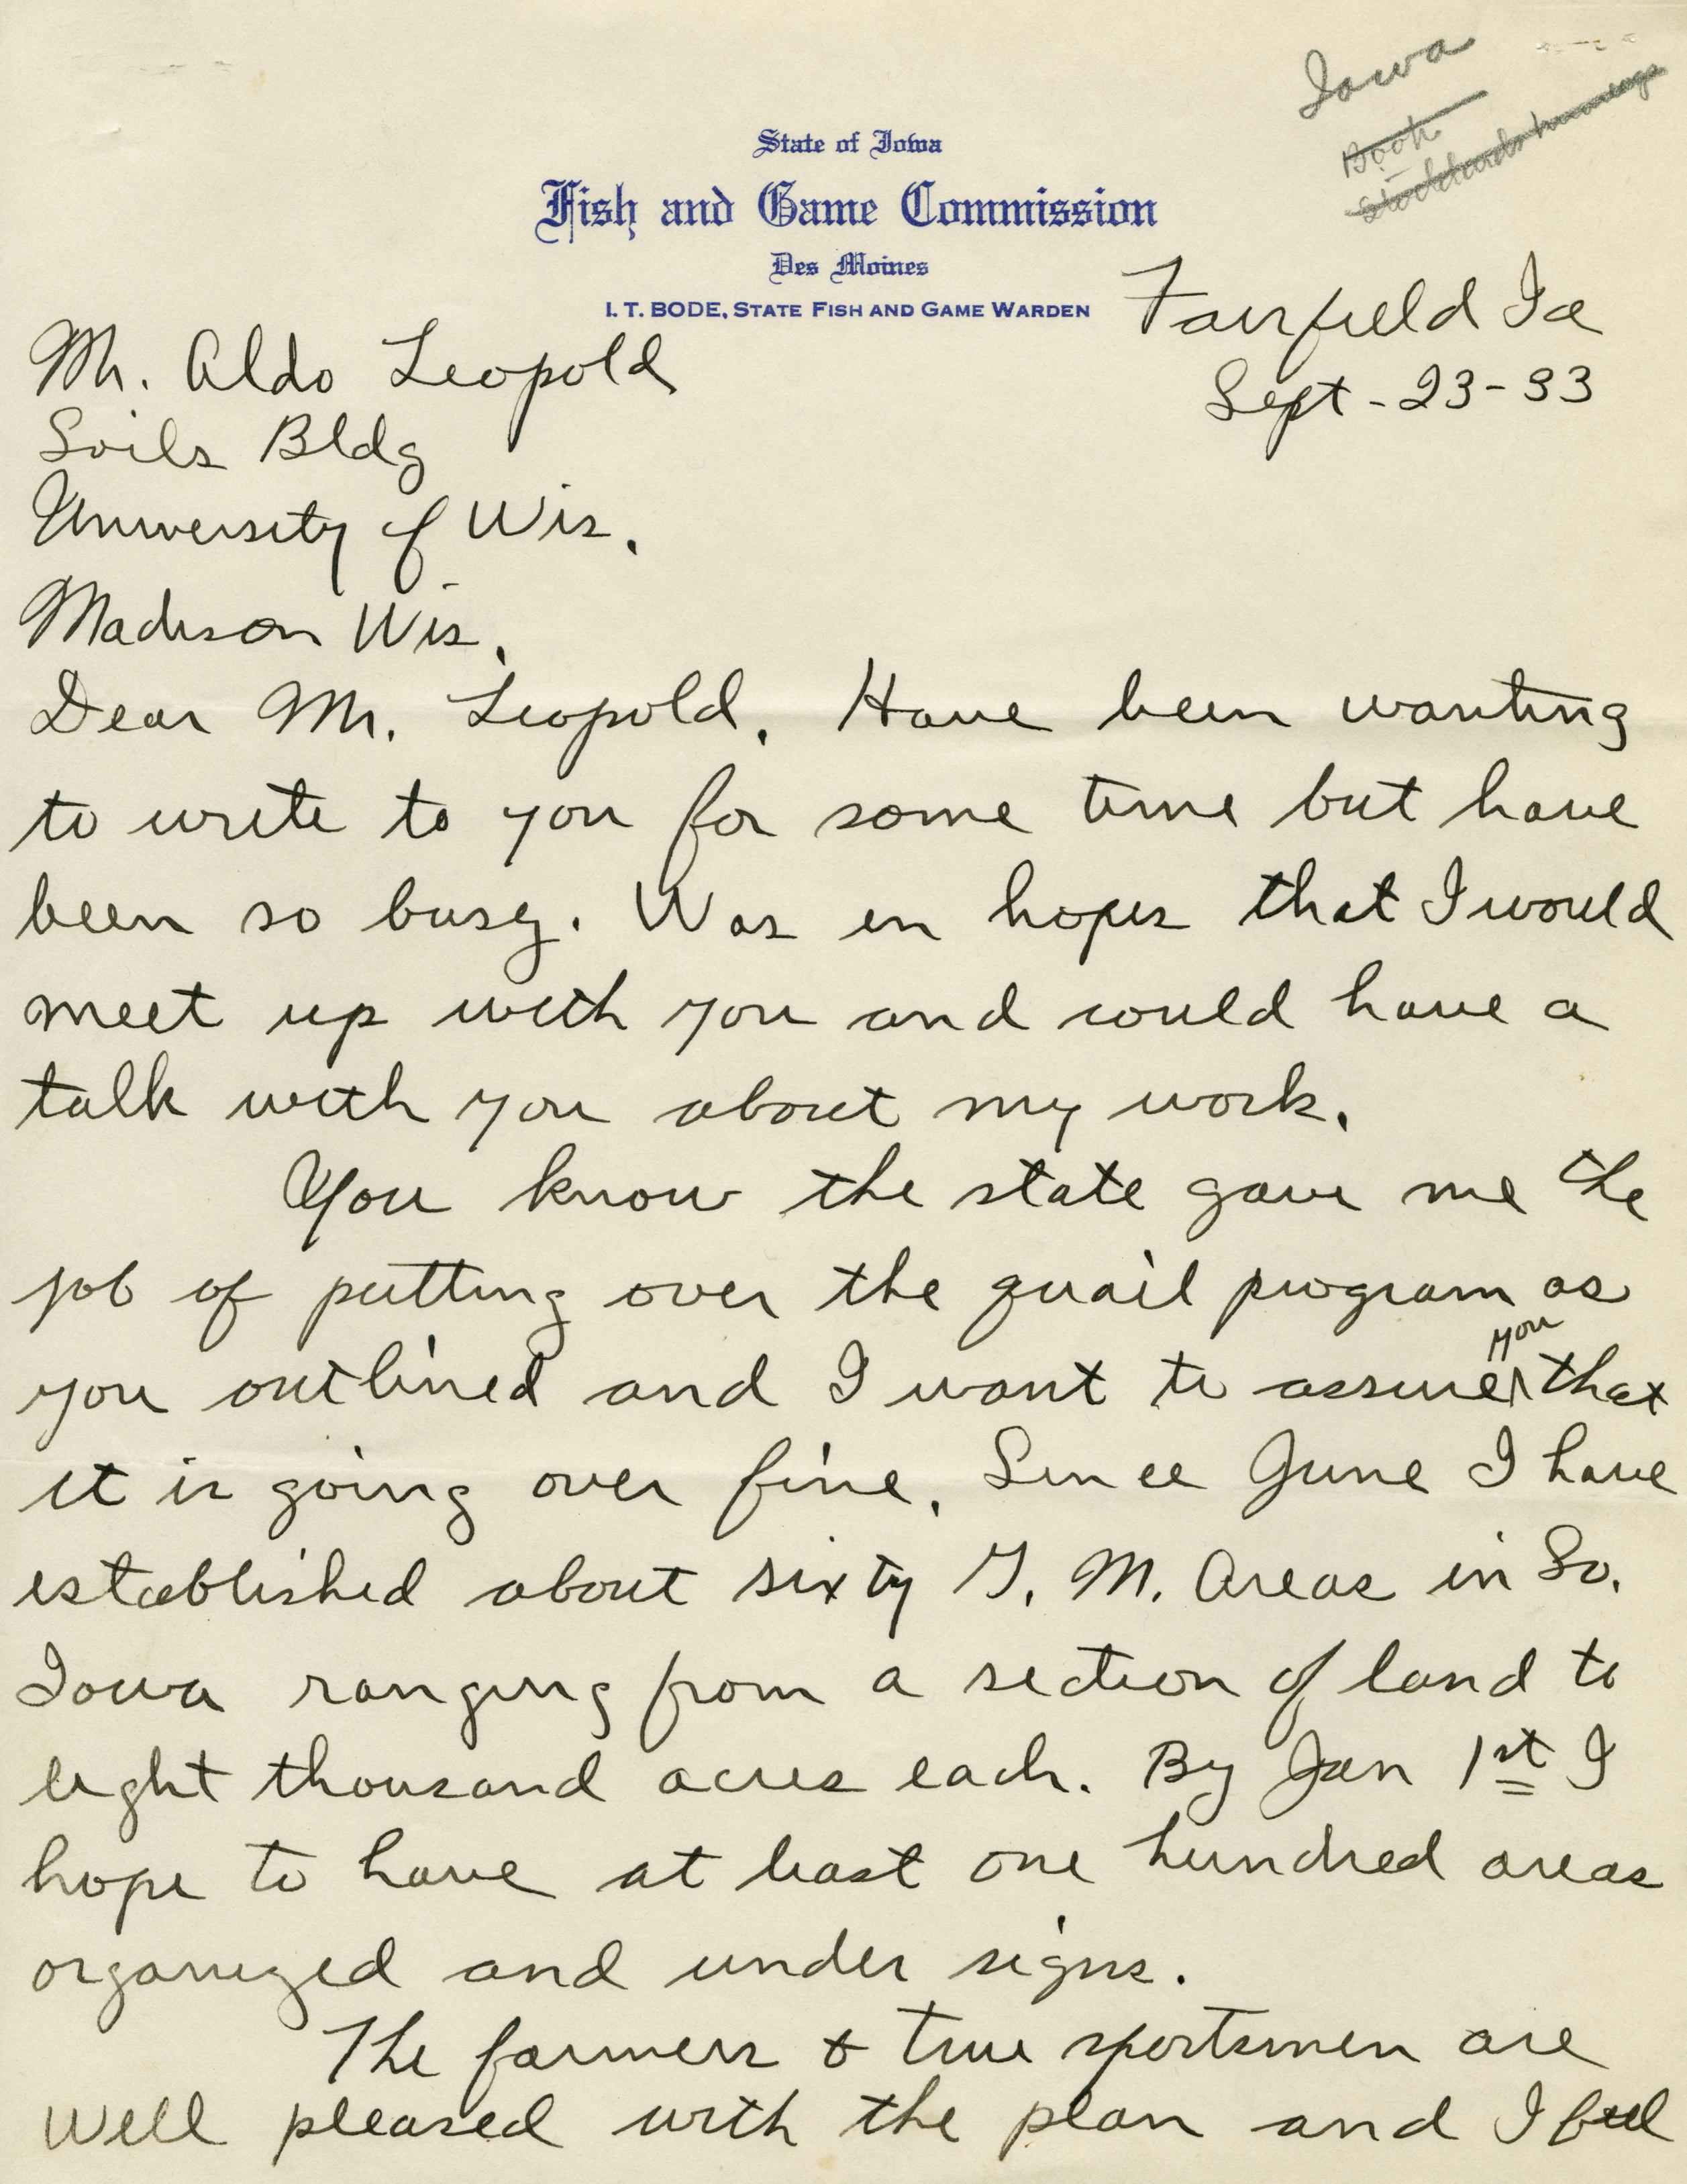 Iowa
Book
State of Iowa
Fish and Game Commission
Des Moines
I. T. BODE, STATE FISH AND GAME WARDEN
Fairfield Ia
Sept - 23 - 33
Mr. Aldo Leopold
Soils Bldg
University of Wis.
Madison Wis.
Dear Mr. Leopold. Have been wanting
to write to you for some time but have
been so busy. Was in hopes that I would
meet up with you and could have a
talk with you about my work.
You know the state gave me the
job of putting over the quail program as
you outlined and I want to assure you that
it is going over fine. Since June I have
established about sixty G. M. Areas in So.
Iowa ranging from a section of land to
eight thousand acres each. By Jan 1st I
hope to have at least one hundred areas
organized and under signs.
The farmers & true sportsmen are
well pleased with the plan and I feel